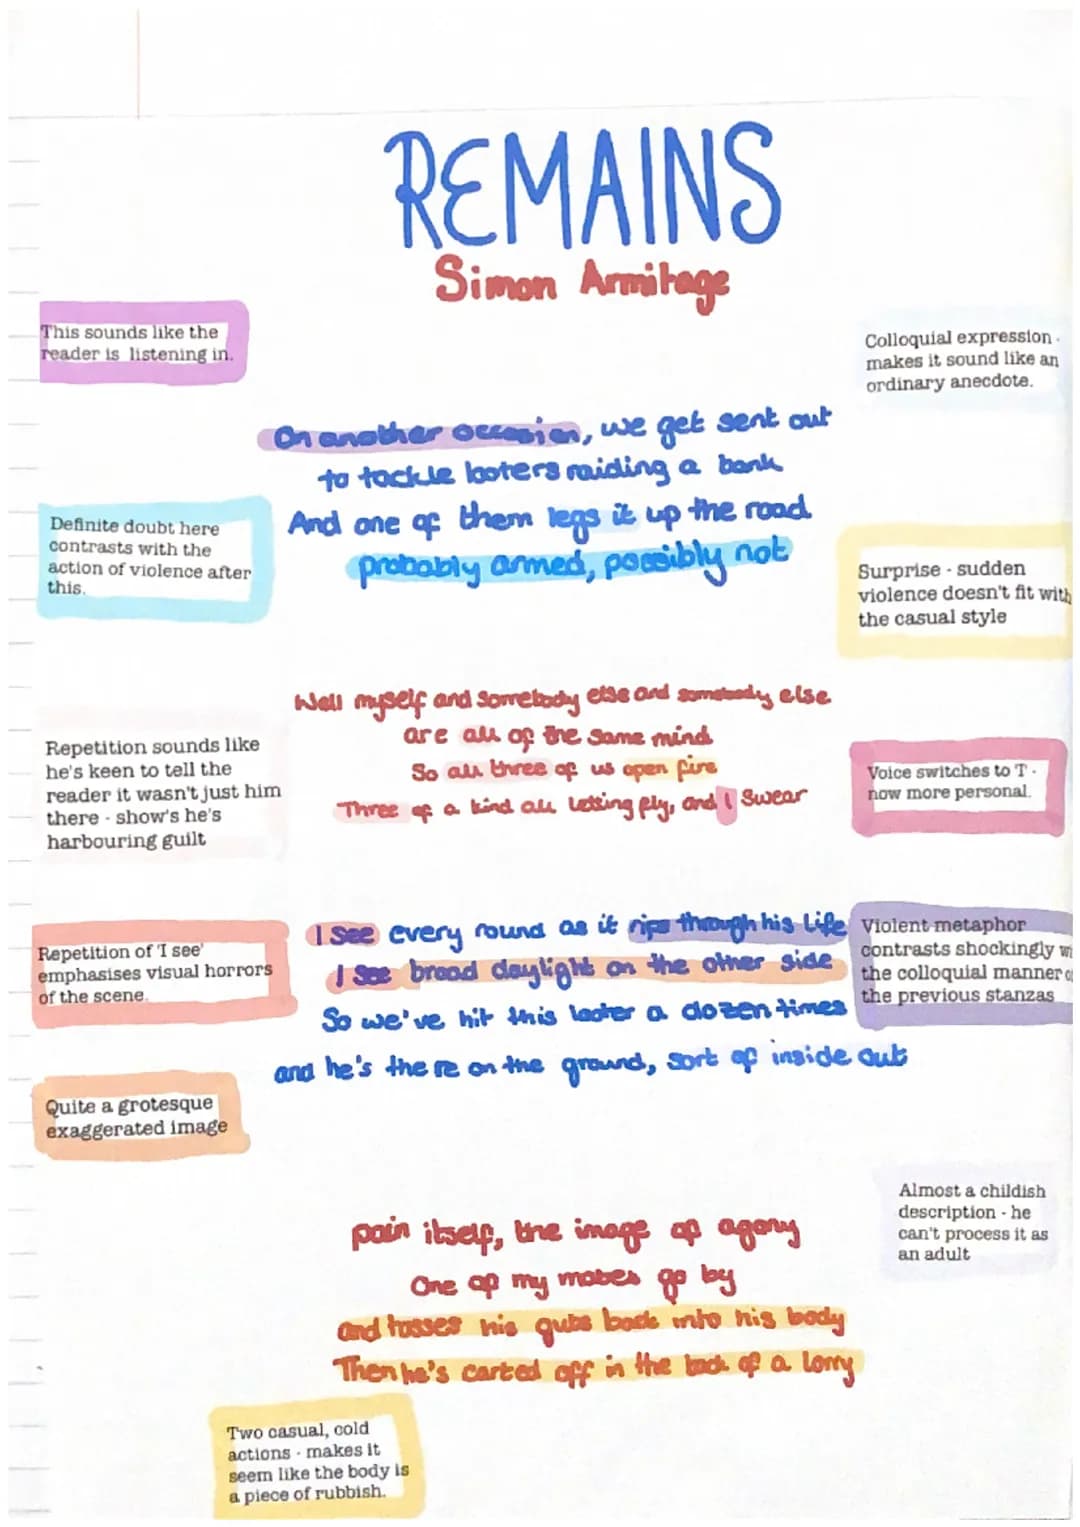 REMAINS
Simon Armitage
This sounds like the
reader is listening in.
Colloquial expression -
makes it sound like an
ordinary anecdote.
On another occasion, we get sent out
to tackle looters raiding a bank
And one of them legs it up the road
probably armed, possibly not
Definite doubt here
contrasts with the
action of violence after
this.
Surprise - sudden
violence doesn't fit with
the casual style
Well myself and somebody else and somebody else
are all of the same mind
So all three of us open fire
Three of a kind all letting fly, and I swear
Repetition sounds like
he's keen to tell the
reader it wasn't just him
there - show's he's
harbouring guilt
Voice switches to 'I' -
now more personal.
I see every round as it rips through his life
I see broad daylight on the other side
So we've hit this looter a dozen times
and he's there on the ground, sort of inside out
Repetition of 'I see'
emphasises visual horrors
of the scene.
Violent metaphor
contrasts shockingly
the colloquial manner
the previous stanzas
Quite a grotesque
exaggerated image
Almost a childish
description - he
can't process it as
an adult
pain itself, the image of agony
One of my mates go by
and tosses his guts back into his body
Then he's carted off in the back of a lorry
Two casual, cold
actions - makes it
seem like the body is
a piece of rubbish.